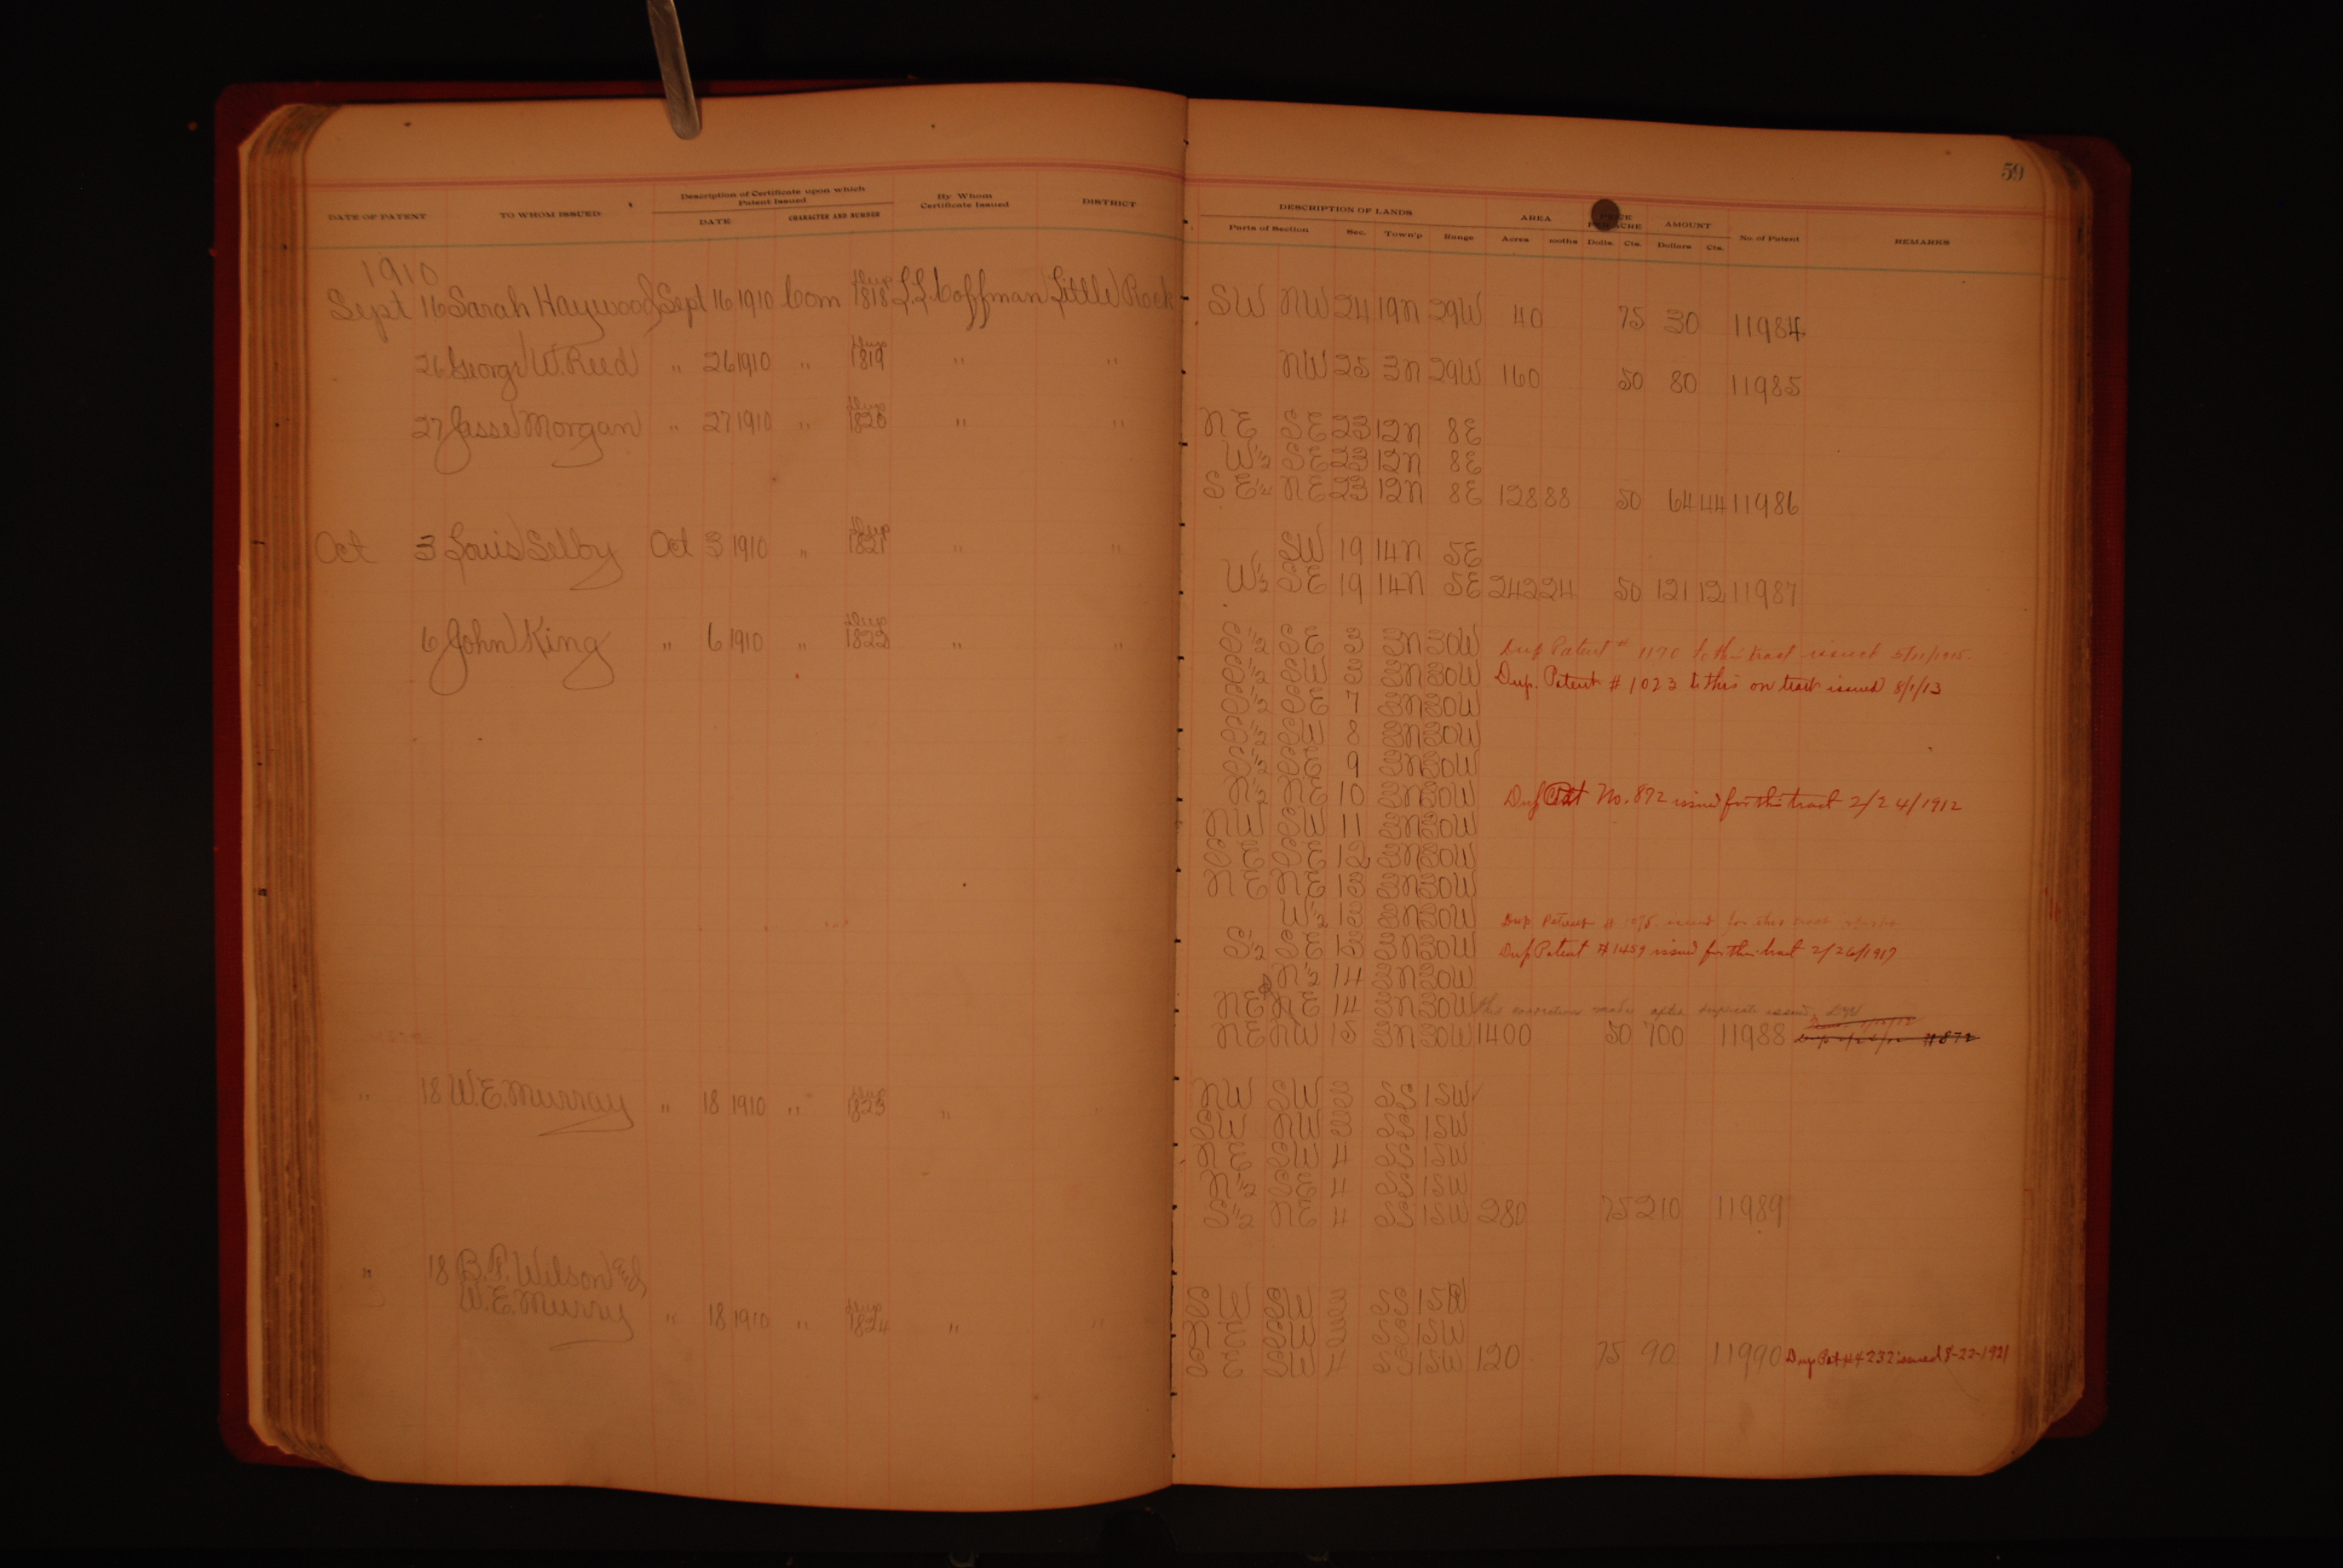 59
DATE OF PATENT TO WHOM ISSUED Description of Certificate upon which Patent Issued DATE CHARACTER AND NUMBER By Whom Certificate Issued DISTRICT DESCRIPTION OF LANDS Parts of Section Sec. Town'p Range AREA Acres 100ths PRICE PER ACRE Dolls. Cts. AMOUNT Dollars Cts. No. of Patent REMARKS
1910
Sept 16 Sarah Haywood Sept 16 1910 Com Dup 1818 L.L. Coffman Little Rock SW NW 24 19N 29W 40 75 30 11984
26 George W. Reed " 26 1910 " Dup 1819 " " NW 25 3N 29W 160 50 80 11985
27 Jesse Morgan " 27 1910 " Dup 1820 " " NE SE 23 12N 8E
W½ SE 23 12N 8E
SE¼ NE 23 12N 8E 128 88 50 64 44 11986
Oct 3 Louis Selby Oct 3 1910 " Dup 1821 " " SW 19 14N 5E
W½ SE 19 14N 5E 242 24 50 121 12 11987
6 John King " 6 1910 " Dup 1822 " " S½ SE 3 3N 30W Dup Patent # 1170 to this tract issued 5/11/1915.
S½ SW 3 3N 30W Dup. Patent # 1023 to this on tract issued 8/1/13
S½ SE 7 3N 30W
S½ SW 8 3N 30W
S½ SE 9 3N 30W
N½ NE 10 3N 30W Dup Pat No. 872 issued for this tract 2/24/1912
NW SW 11 3N 30W
SE SE 12 3N 30W
NE NE 13 3N 30W
W½ 13 3N 30W Dup Patent # issued for this tract
S½ SE 13 3N 30W Dup Patent #1459 issued for this tract 2/26/1917
N½ 14 3N 30W
NE NE 14 3N 30W this correction made after duplicate issued
NE NW 15 3N 30W 1400 50 700 11988 #872
" 18 W.E. Murray " 18 1910 " Dup 1823 " " NW SW 3 5S 15W
SW NW 3 5S 15W
NE SW 4 5S 15W
N½ SE 4 5S 15W
S½ NE 4 5S 15W 280 75 210 11989
" 18 B.F. Wilson and
W.E. Murry " 18 1910 " Dup 1824 " " SW SW 3 5S 15W
SW 3 5S 15W
SE SW 4 5S 15W 120 75 90 11990 Dup Pat #4232 issued 8-22-1921